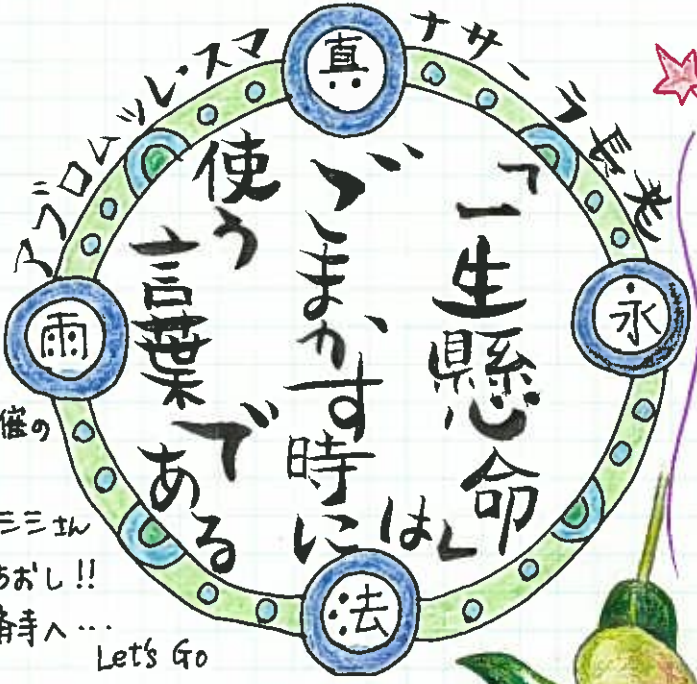 アブロムッレ・スマ
ナサーラ長老
真
永
法
雨
「一生懸命」は
ごまかす時に
使う
言葉である
催の
ミシミさん
おし!!
寺へ…
Let's Go